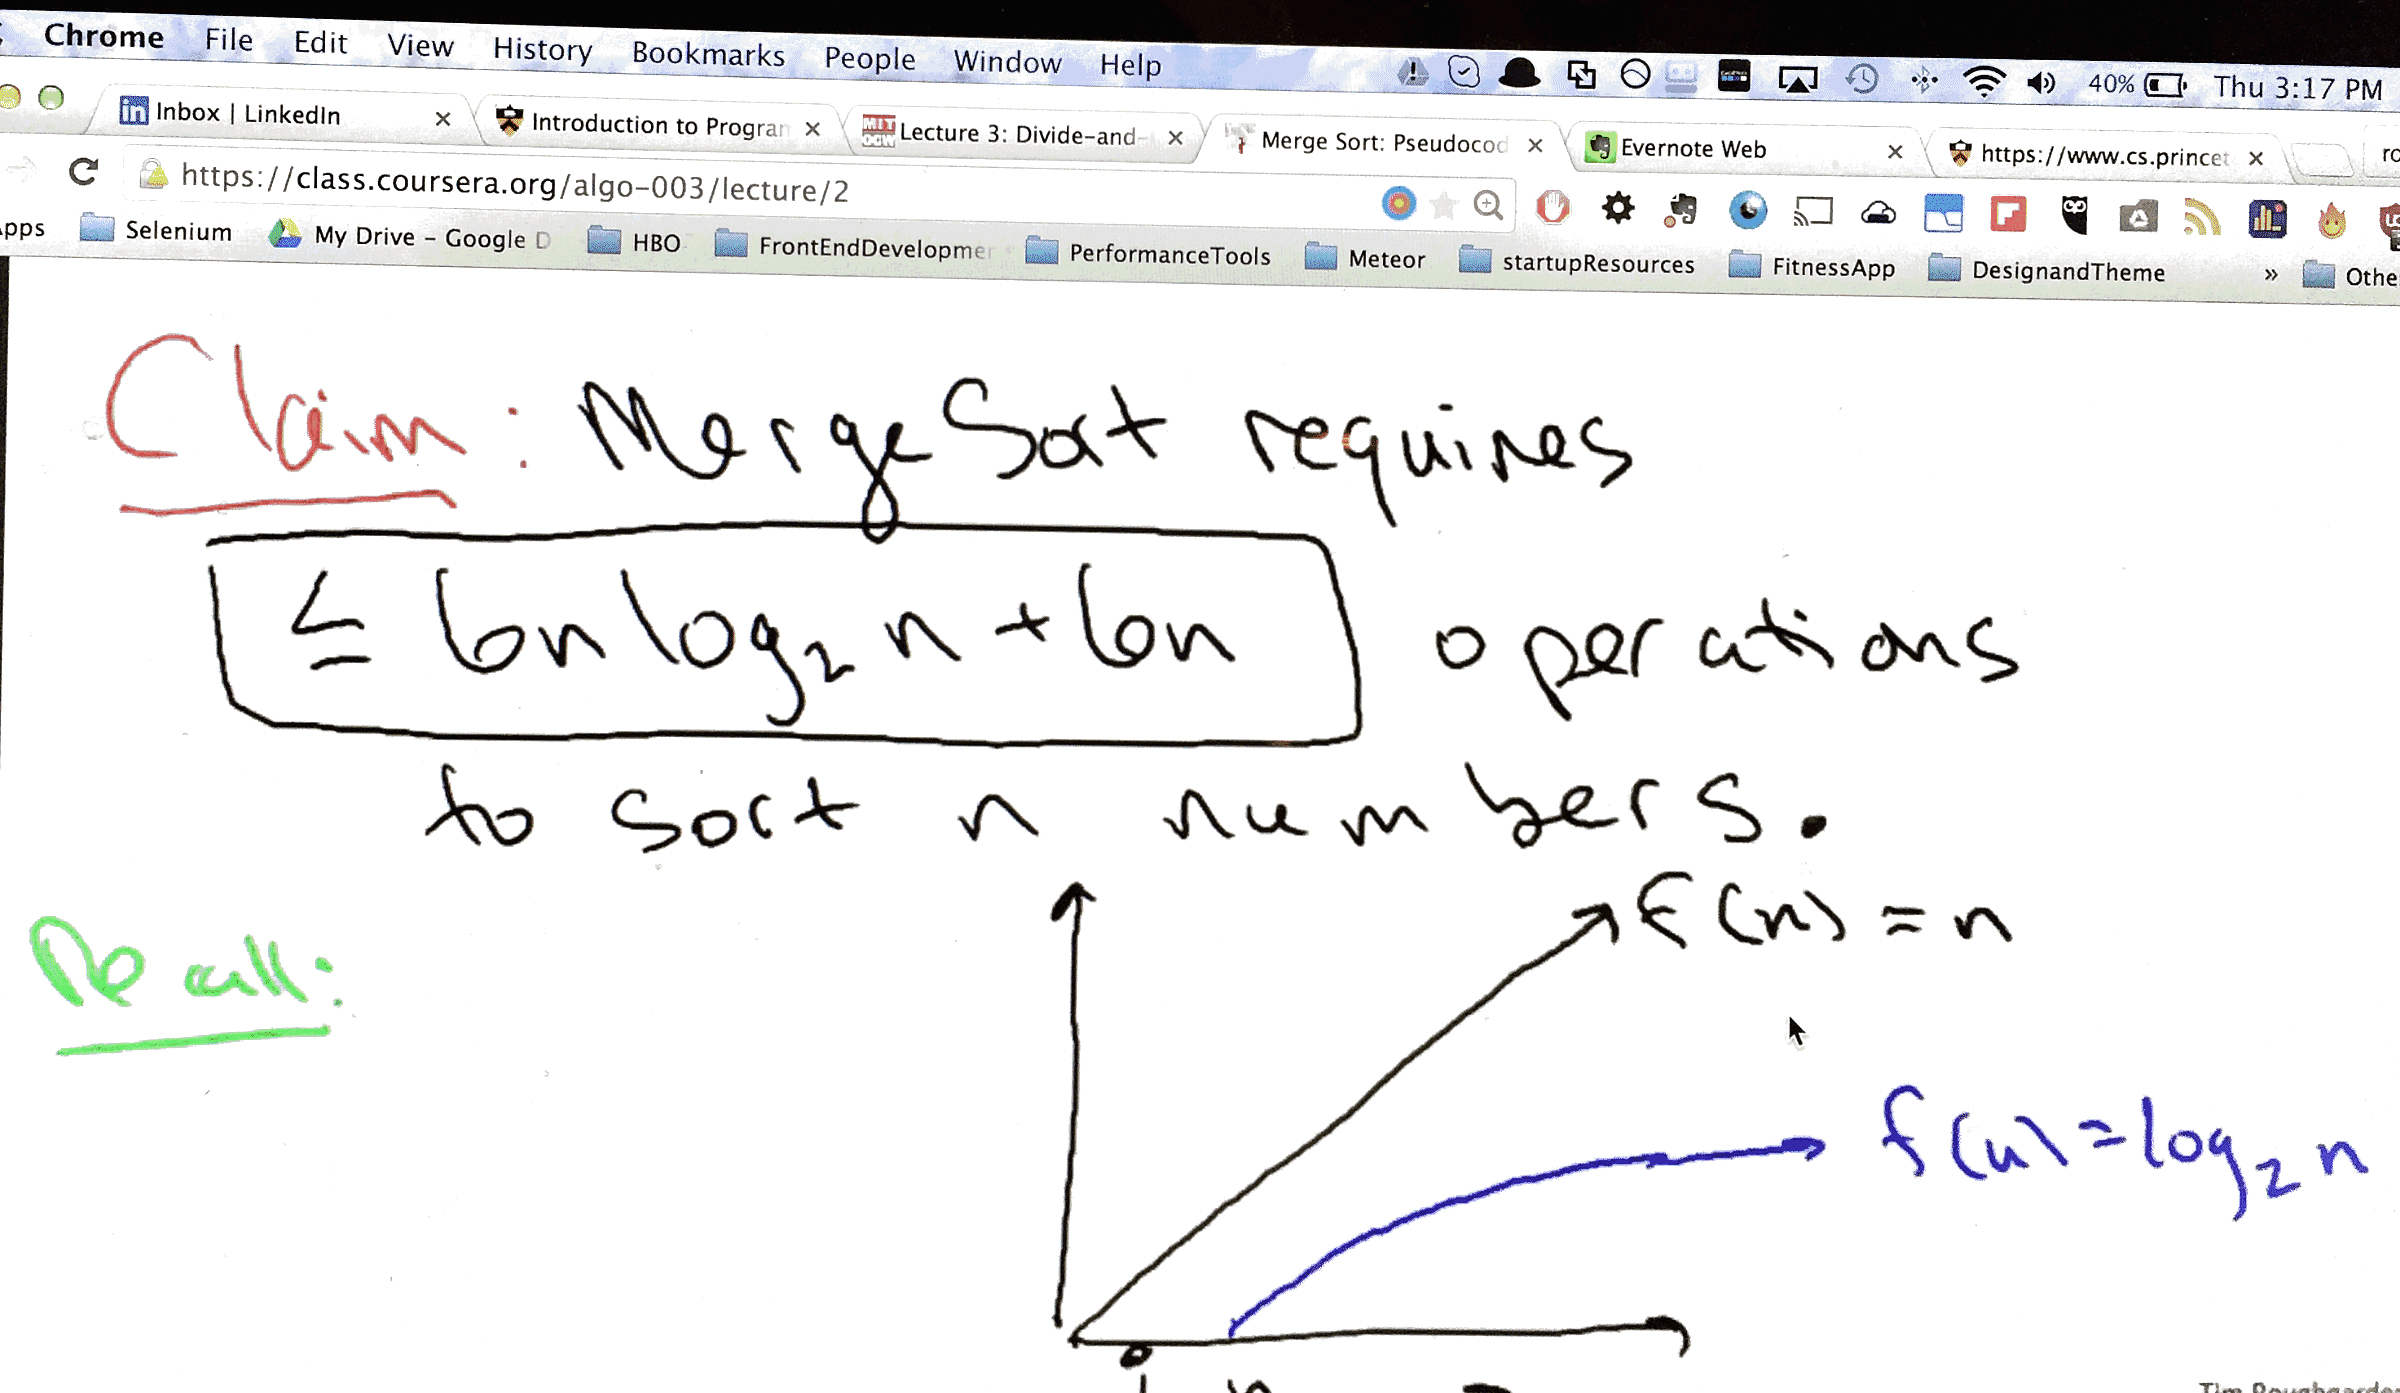 Chrome File Edit View History Bookmarks People Window Help 40% Thu 3:17 PM
Inbox | LinkedIn Introduction to Progran Lecture 3: Divide-and- Merge Sort: Pseudocod Evernote Web https://www.cs.princet
https://class.coursera.org/algo-003/lecture/2
pps Selenium My Drive - Google D HBO FrontEndDevelopmer PerformanceTools Meteor startupResources FitnessApp DesignandTheme » Othe
Claim: MergeSort requires
≤ 6n log₂ n + 6n operations
to sort n numbers.
f(n) = n
Recall:
f(n) = log₂ n